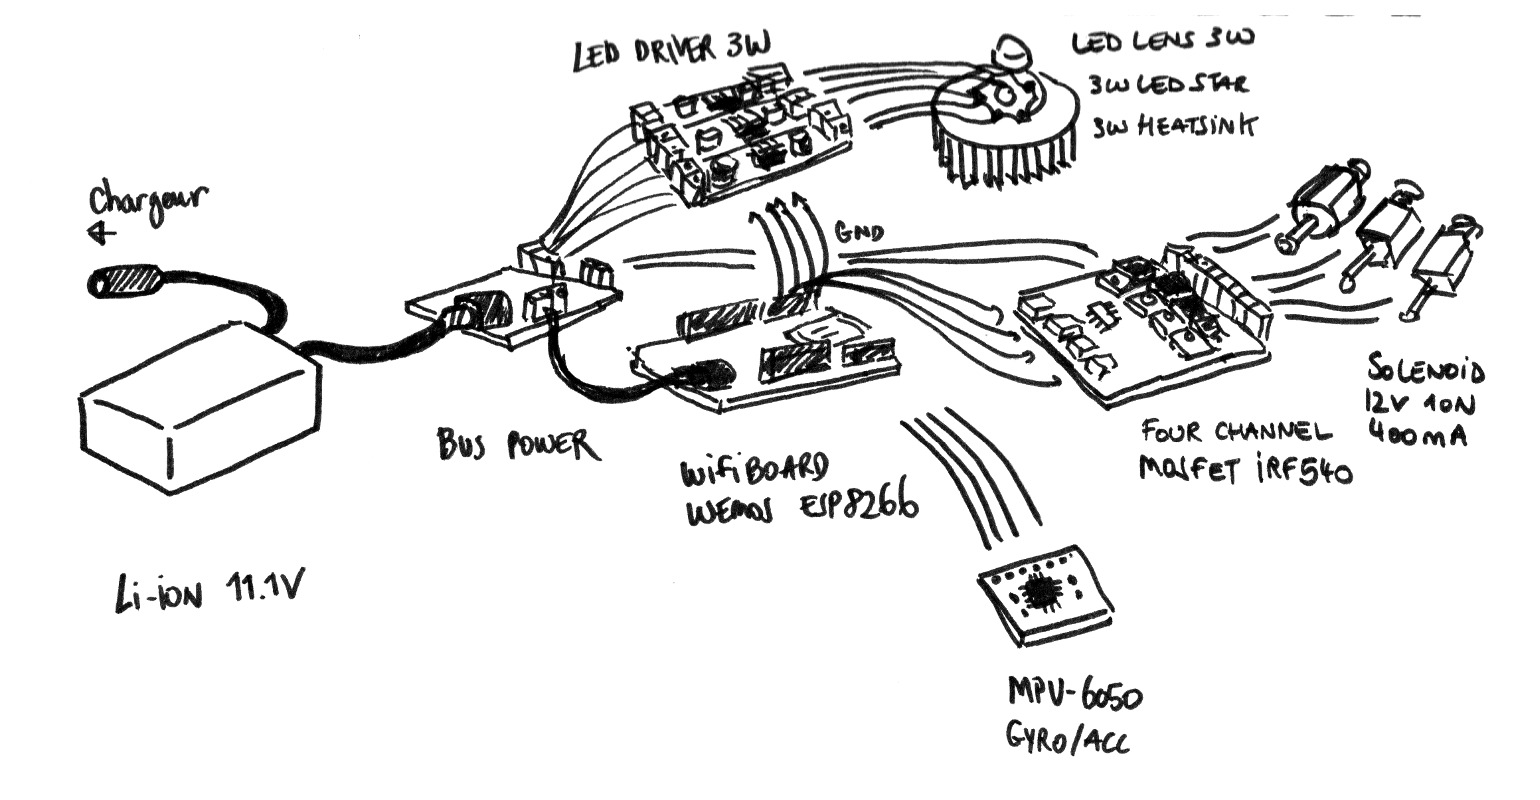 LED DRIVER 3W
LED LENS 3W
3W LED STAR
3W HEATSINK
Chargeur
GND
SOLENOID
12V 10N
400mA
BUS POWER
FOUR CHANNEL
MOSFET iRF540
WifiBOARD
WEMOS ESP8266
Li-ion 11.1V
MPU-6050
GYRO/ACC